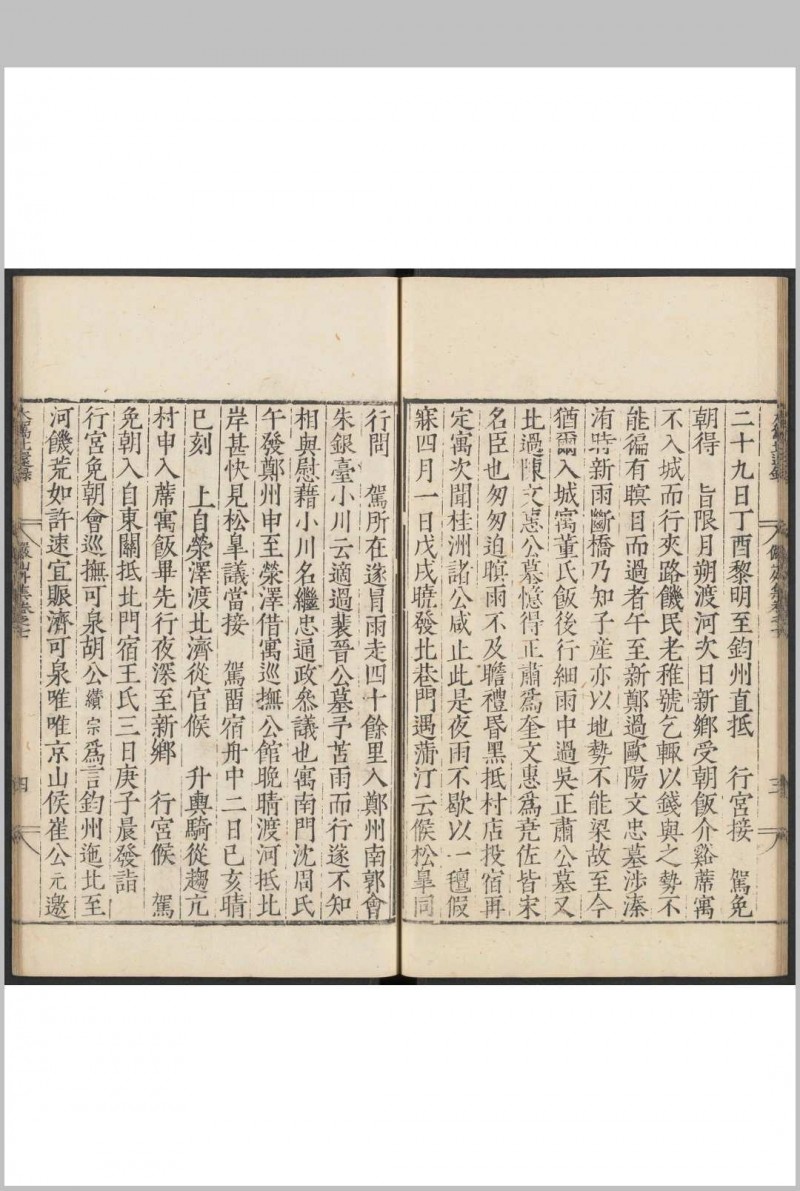 二十九日丁酉黎明至鈞州直抵　行宮接　駕免
朝得　旨限月朔渡河次日新鄉受朝飯介谿蓆寓
不入城而行夾路饑民老稚號乞輒以錢與之勢不
能徧有瞑目而過者午至新鄭過歐陽文忠墓涉溱
洧時新雨斷橋乃知子產亦以地勢不能梁故至今
猶爾入城寓董氏飯後行細雨中過吳正肅公墓又
北過陳文惠公墓憶得正肅爲奎文惠爲堯佐皆宋
名臣也匆匆迫暝雨不及瞻禮昏黑抵村店投宿再
定寓次聞桂洲諸公咸止此是夜雨不歇以一氊假
寐四月一日戊戌曉發北巷門遇蒲汀云候松臯同
行問　駕所在遂冒雨走四十餘里入鄭州南郭會
朱銀臺小川云適過裴晉公墓予苦雨而行遂不知
相與慰藉小川名繼忠通政叅議也寓南門沈周氏
午發鄭州申至滎澤借寓巡撫公館晚晴渡河抵北
岸甚快見松臯議當接　駕畱宿舟中二日己亥晴
巳刻　上自滎澤渡北濟從官候　升輿騎從趨亢
村申入蓆寓飯畢先行夜深至新鄉　行宮候　駕
免朝入自東關抵北門宿王氏三日庚子晨發詣
行宮免朝會巡撫可泉胡公纘宗爲言鈞州迤北至
河饑荒如許速宜賑濟可泉唯唯京山侯崔公元邀
三
四